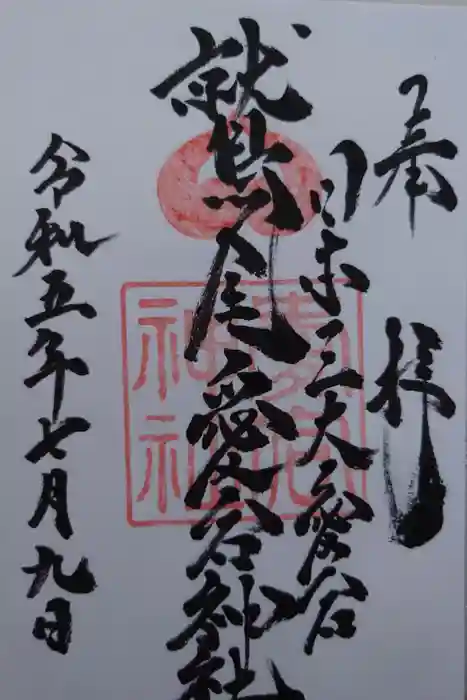 奉拝
日本三大愛宕
鷲尾愛宕神社
令和五年七月九日
愛宕神社